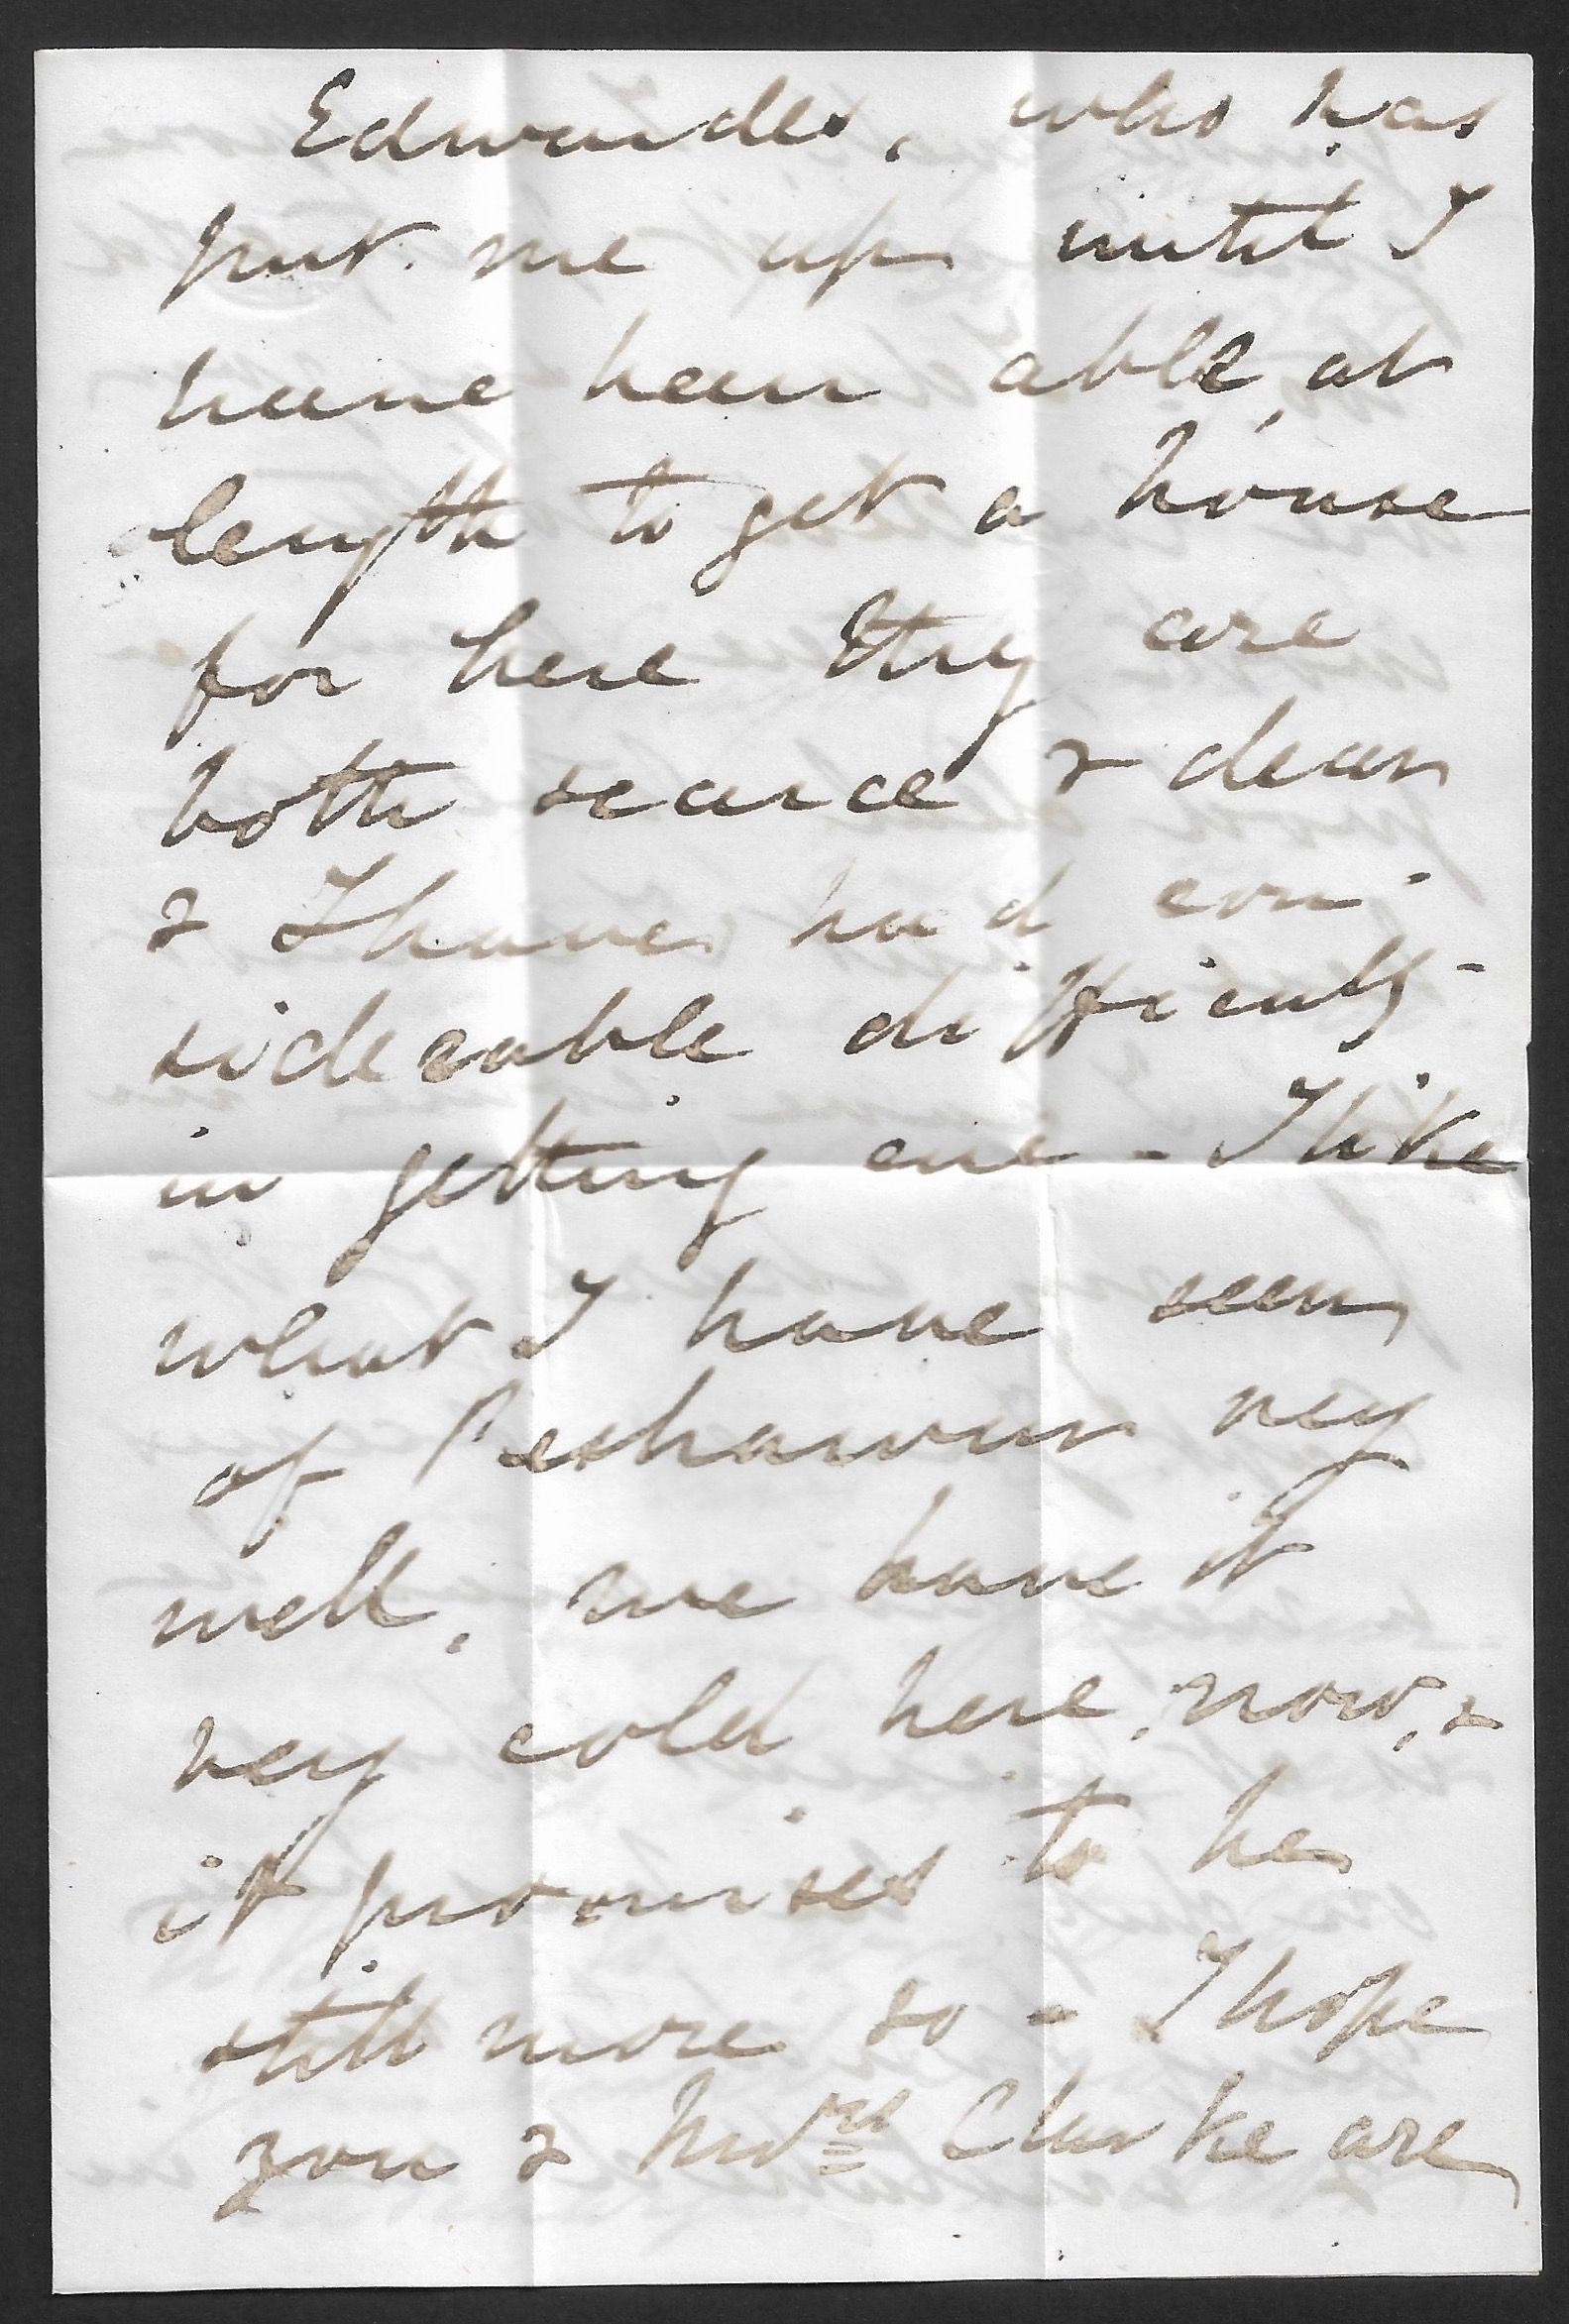 Edwardes, who has
put me up until I
have been able, at
length to get a house
for here they are
both scarce & dear
& I have had con-
siderable difficulty
in getting one - I like
what I have seen
of Peshawur very
well, we have it
very cold here, now, &
it promises to be
still more so - I hope
you & Mrs Clarke are